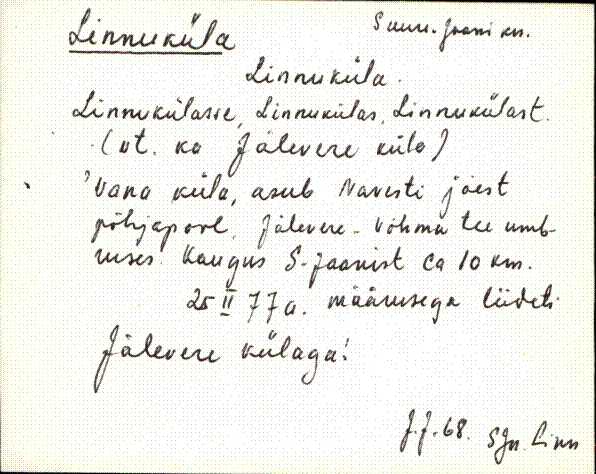 Linnuküla
Suure-Jaani khk.
Linnuküla.
Linnukülasse, Linnukülas, Linnukülast.
(vt. ka Jälevere küla)
Vana küla, asub Navesti jõest
põhjapool, Jälevere-Võhma tee ümb-
ruses. Kaugus S-Jaanist ca 10 km.
25 II 77 a. määrusega liideti
Jälevere külaga!
J.J. 68.